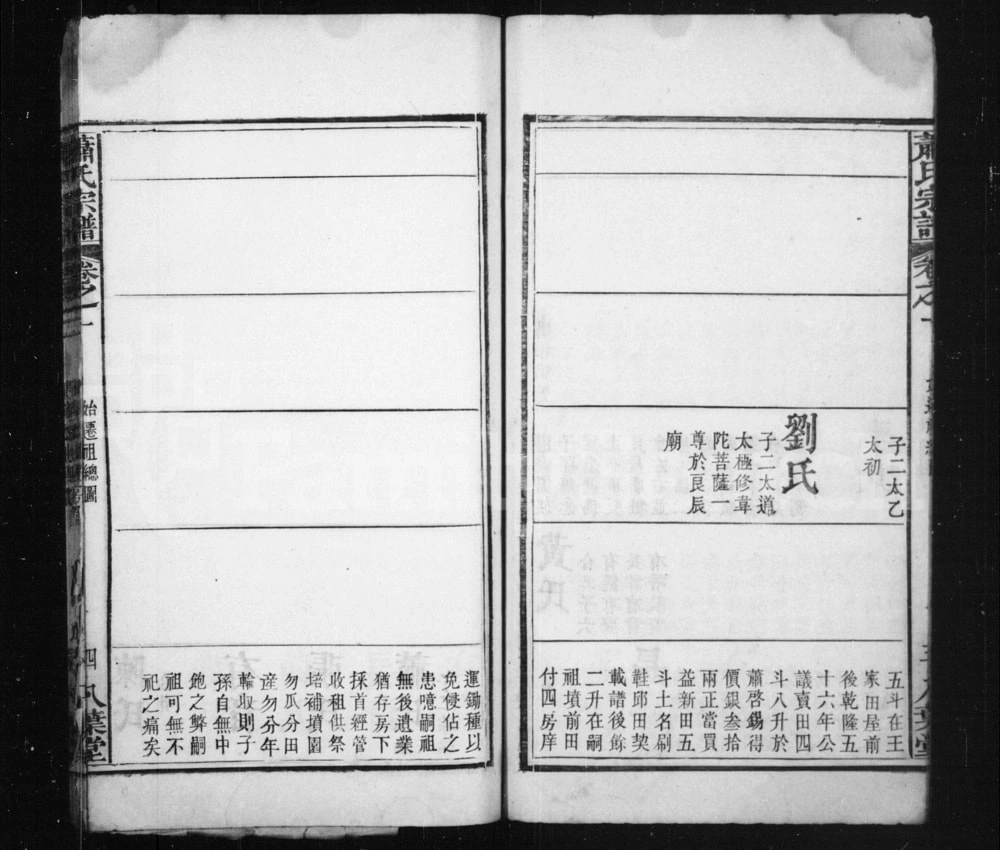 蕭氏宗譜
卷之一
八葉堂
子二太乙
太初
劉氏
子二太道
太極修葺
陀菩薩一
尊於艮辰
廟
五斗在王
家田屋前
後乾隆五
十六年公
議賣田四
斗八升於
蕭啓錫得
價銀叁拾
兩正當買
益新田五
斗土名刷
鞋邱田契
載譜後餘
二升在嗣
祖墳前田
付四房庠
運鋤種以
免侵佔之
患噫嗣祖
無後遺業
猶存房下
採首經管
收租供祭
培補墳園
勿瓜分田
産勿分年
輪収則子
孫自無中
飽之弊嗣
祖可無不
祀之痛矣
蕭氏宗譜
卷之一
始遷祖總圖
四
八葉堂